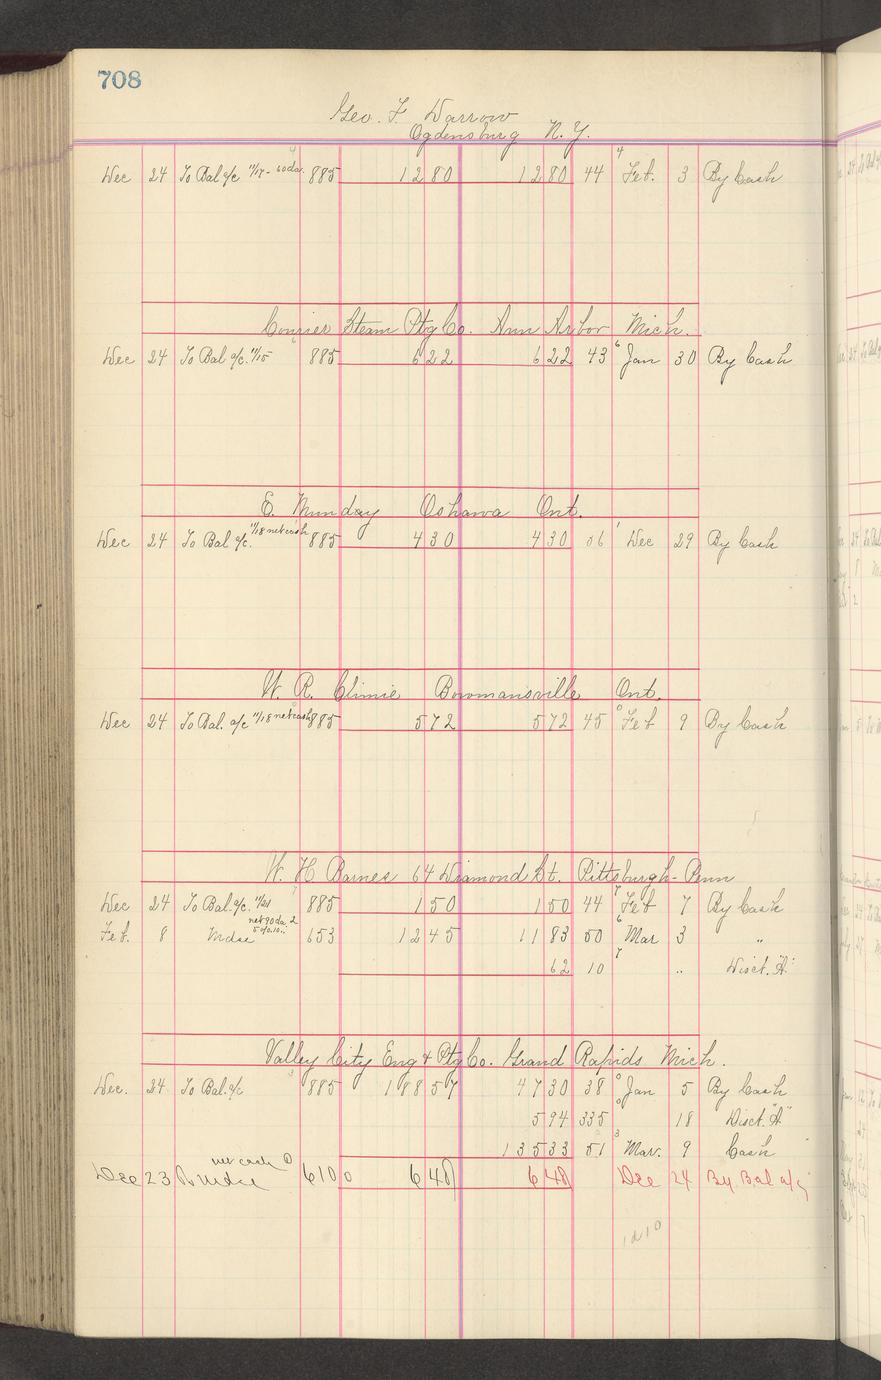 708
Geo. F. Darrow
Ogdensburg N.Y.
Dec 24 To Bal a/c 11/17 - 60 da. 885 1280 1280 44 4 Feb. 3 By Cash
Courier Steam Ptg Co. Ann Arbor Mich.
Dec 24 To Bal a/c. 11/15 885 622 622 43 6 Jan 30 By Cash
E. Munday Oshawa Ont.
Dec 24 To Bal a/c. 11/18 net cash 885 430 430 06 1 Dec 29 By Cash
W. R. Climie Bowmansville Ont.
Dec 24 To Bal. a/c 11/18 net cash 885 572 572 45 0 Feb 9 By Cash
W. H Barnes 64 Diamond St. Pittsburgh - Penn
Dec 24 To Bal. a/c. 11/21 885 150 150 44 7 Feb 7 By Cash
Feb. 8 Mdse net 90 da 2 5% 10 653 1245 1183 50 6 Mar 3 "
62 10 7 " Disct. "A"
Valley City Eng & Ptg Co. Grand Rapids Mich.
Dec. 24 To Bal. a/c 885 18857 4730 38 0 Jan 5 By Cash
594 335 0 18 Disct. "A"
13533 51 3 Mar. 9 Cash
Dec 23 To Mdse net cash 610 0 648 648 Dec 24 By Bal a/c